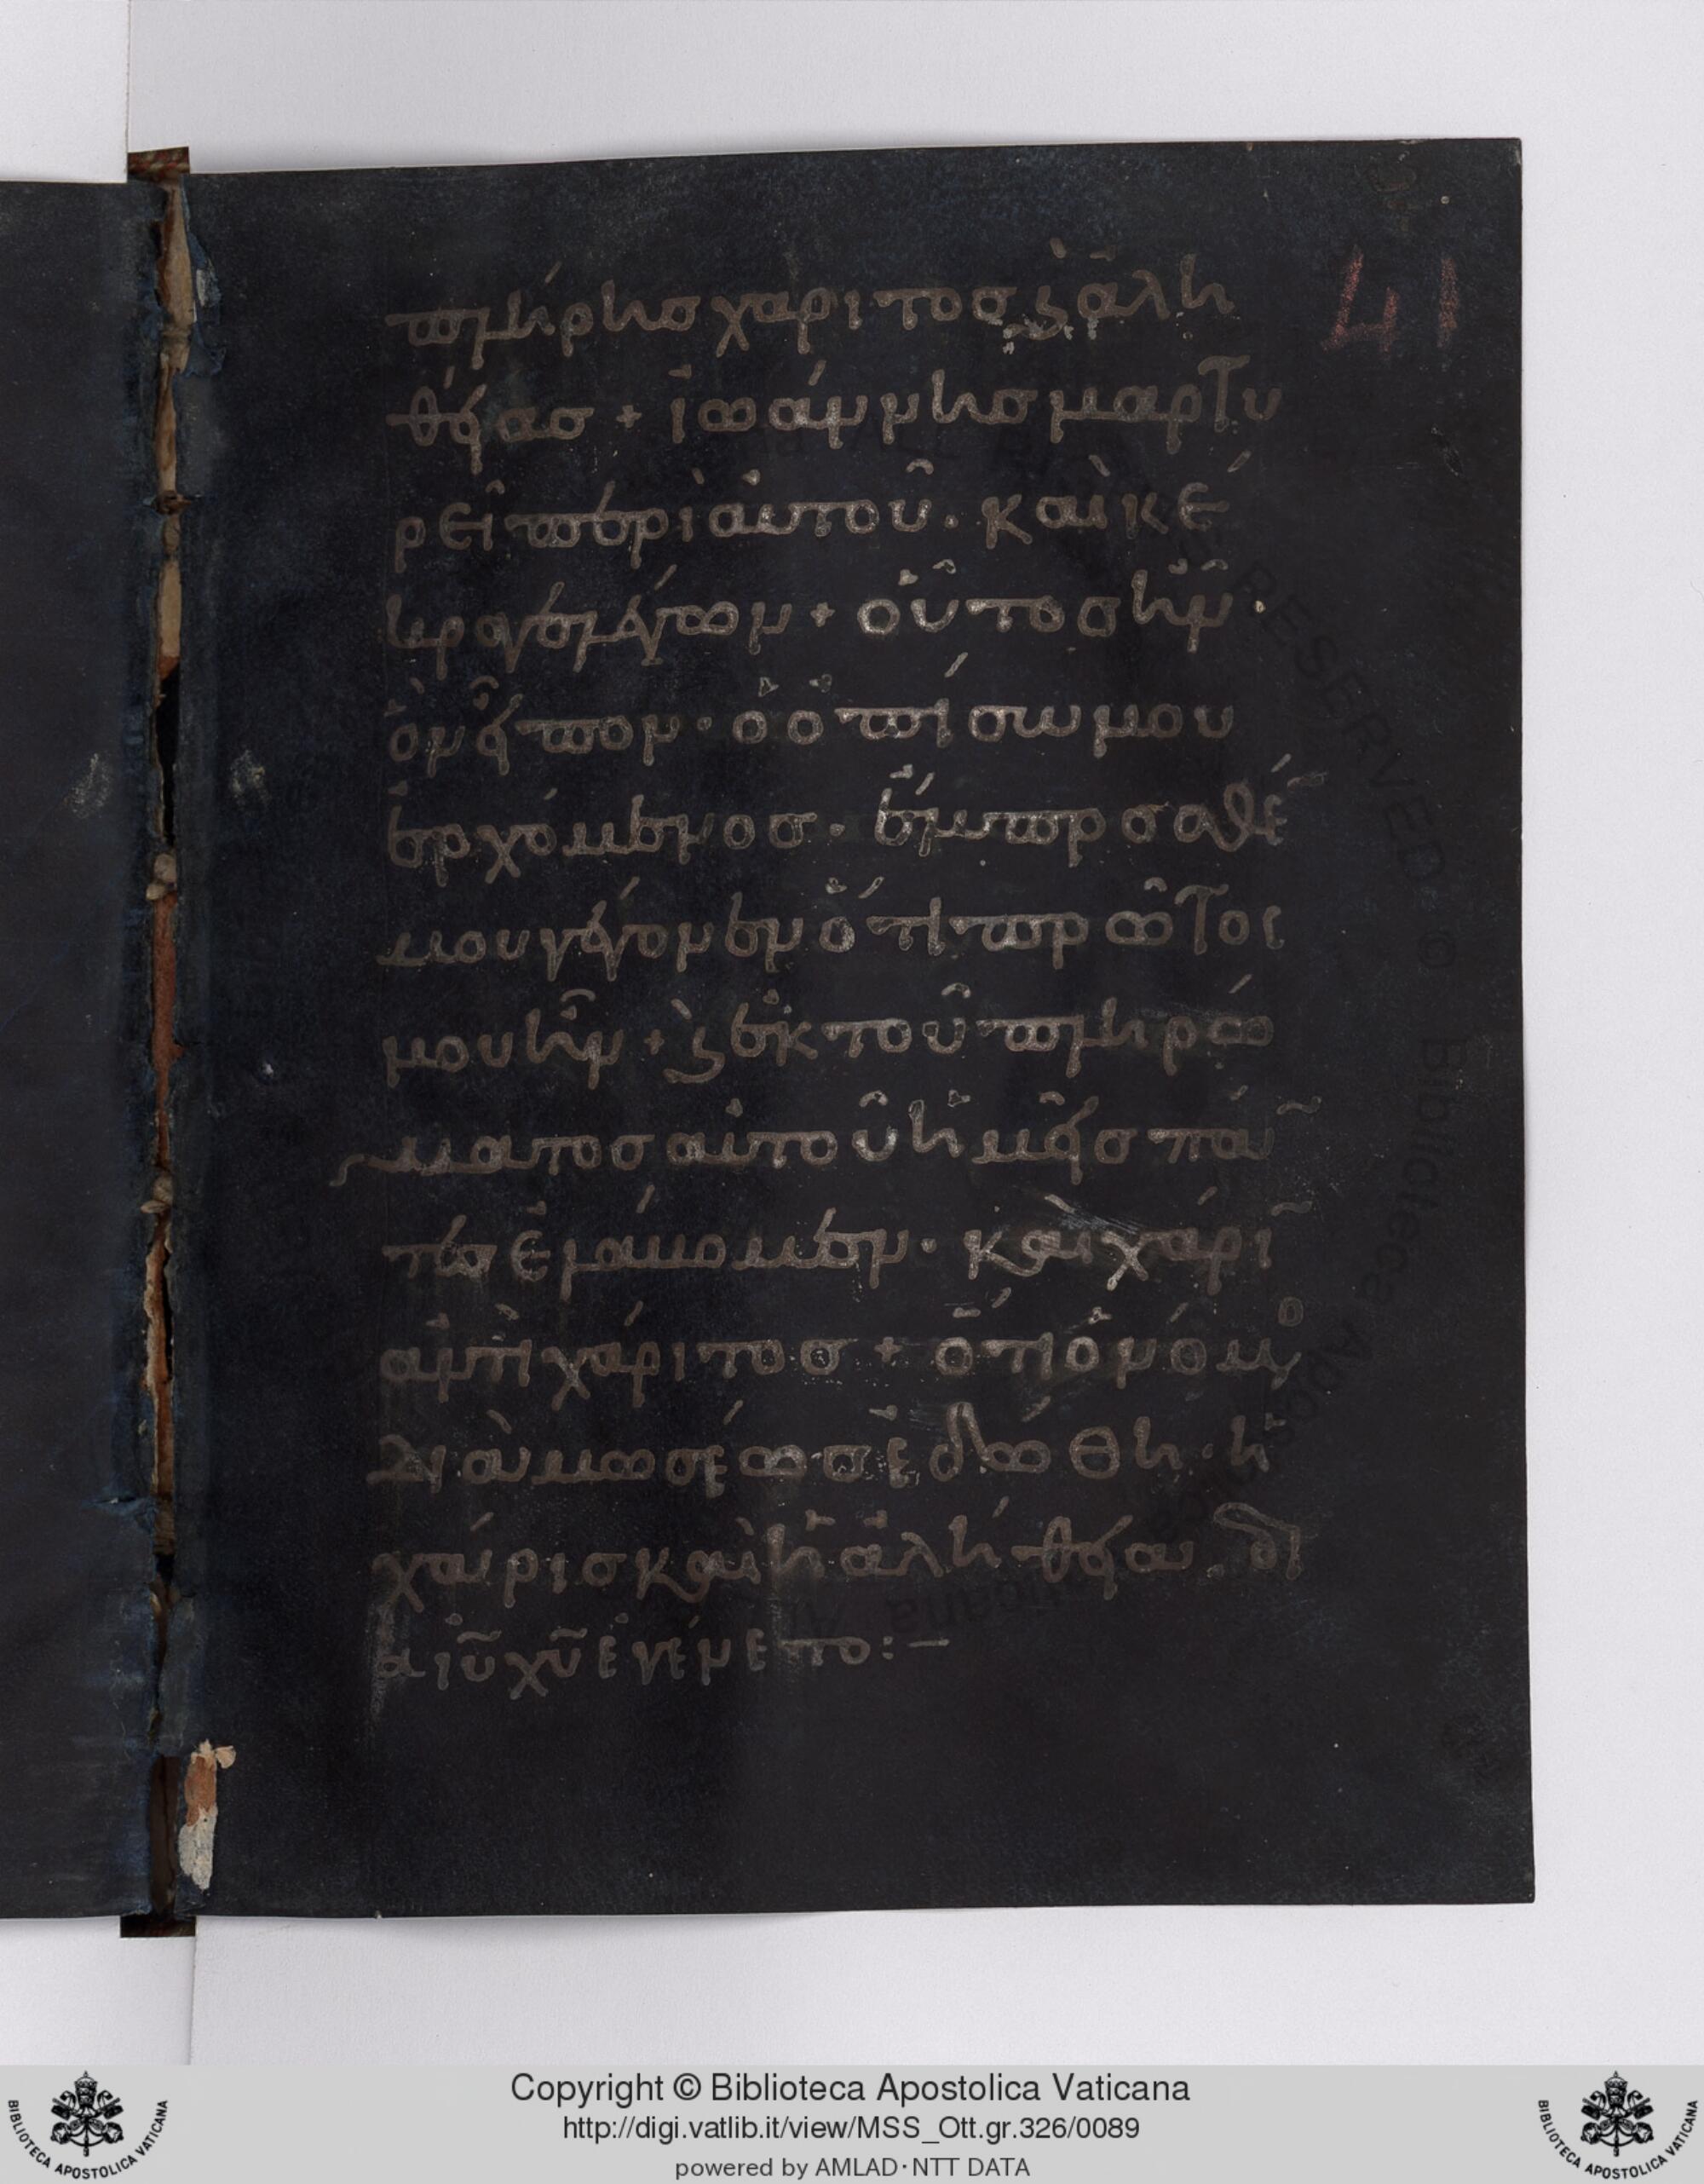 41
πλήρης χάριτος ϗ ἀλη
θείας + ἰωάννης μαρτυ
ρεῖ περὶ αὐτοῦ · καὶ κέ
κραγε λέγων + οὗτος ἦν ·
ὃν εἶπον · ὁ ὀπίσω μου
ἐρχόμενος · ἔμπροσθέ
μου γέγονεν ὅτι πρῶτος
μου ἦν + ϗ ἐκ τοῦ πληρώ
ματος αὐτοῦ ἡμεῖς πά
τες ἐλάβομεν · καὶ χάρι
ἀντὶ χάριτος + ὅτι ὁ νόμο
διὰ μωσέως ἐδώθη · ἡ
χάρις καὶ ἡ ἀλήθεια · δι
α ιυ χυ ἐγένετο :–
BIBLIOTECA APOSTOLICA VATICANA
Copyright © Biblioteca Apostolica Vaticana
http://digi.vatlib.it/view/MSS_Ott.gr.326/0089
powered by AMLAD·NTT DATA
BIBLIOTECA APOSTOLICA VATICANA